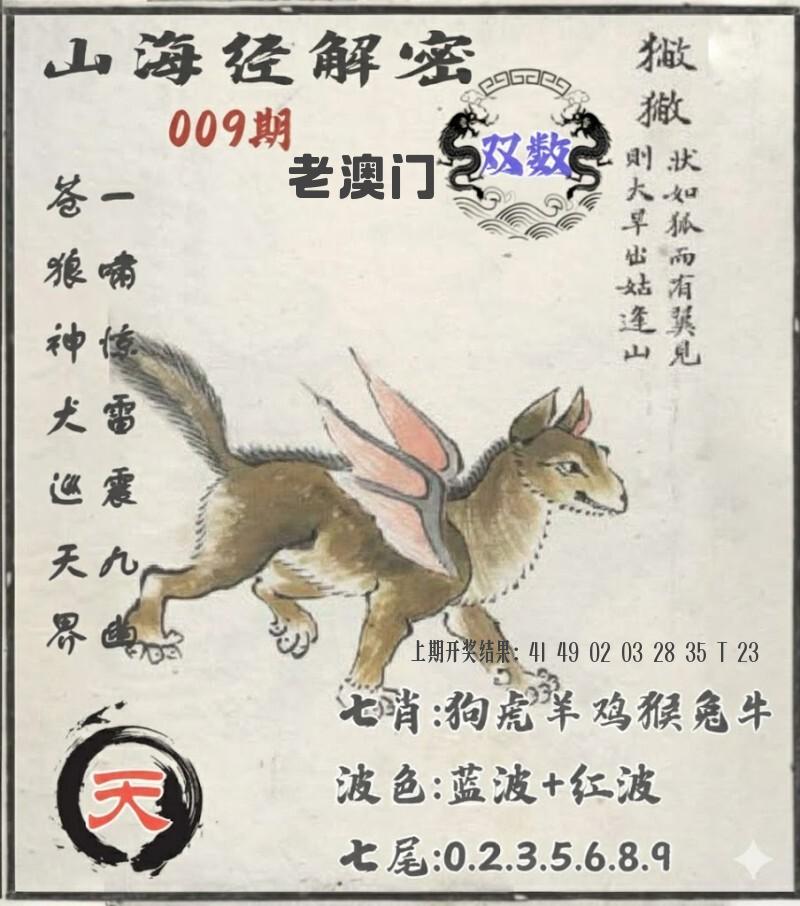 山海经解密
009期
老澳门
双数
獙
獙
狀如狐而有翼見
則大旱出姑逢山
一啸惊雷震九幽
苍狼神犬巡天界
上期开奖结果：41 49 02 03 28 35 T 23
七肖:狗虎羊鸡猴兔牛
波色:蓝波+红波
七尾:0.2.3.5.6.8.9
天